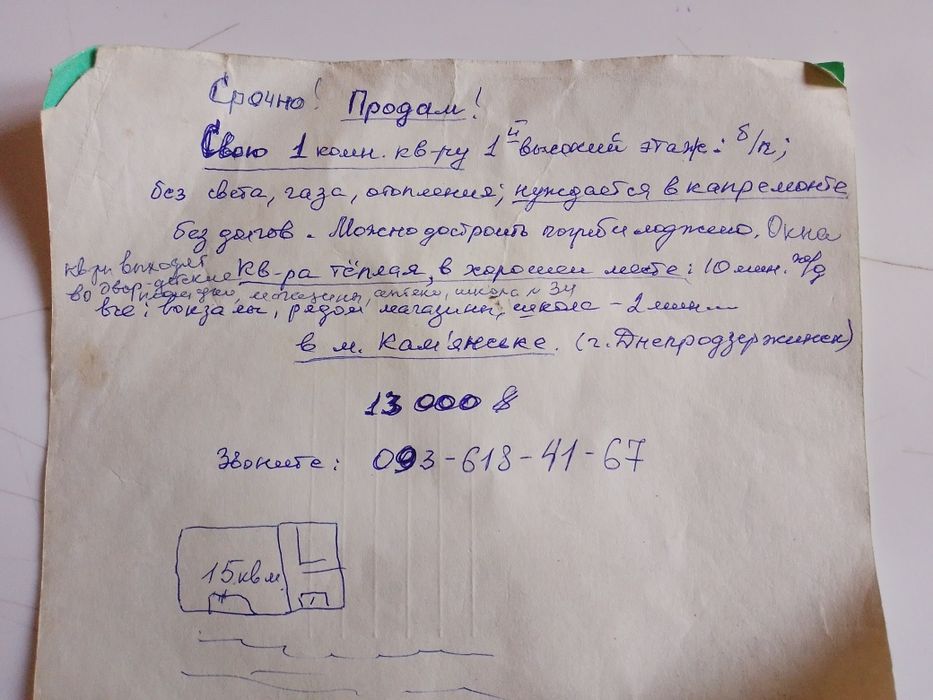 Срочно! Продам!
Свою 1 комн. кв-ру 1й высокий этаж: б/п;
без света, газа, отопления; нуждается в капремонте
без долгов. Можно достроить погреб и лоджию. Окна
кв-ры выходят
во двор - детские
площадки, магазины, аптеки, школа № 34
кв-ра тёплая, в хорошем месте: 10 мин.
все: вокзалы, рядом магазины, школа - 2 мин
в м. Кам'янське. (г. Днепродзержинск)
13 000 $
Звоните: 093-618-41-67
15 кв м.